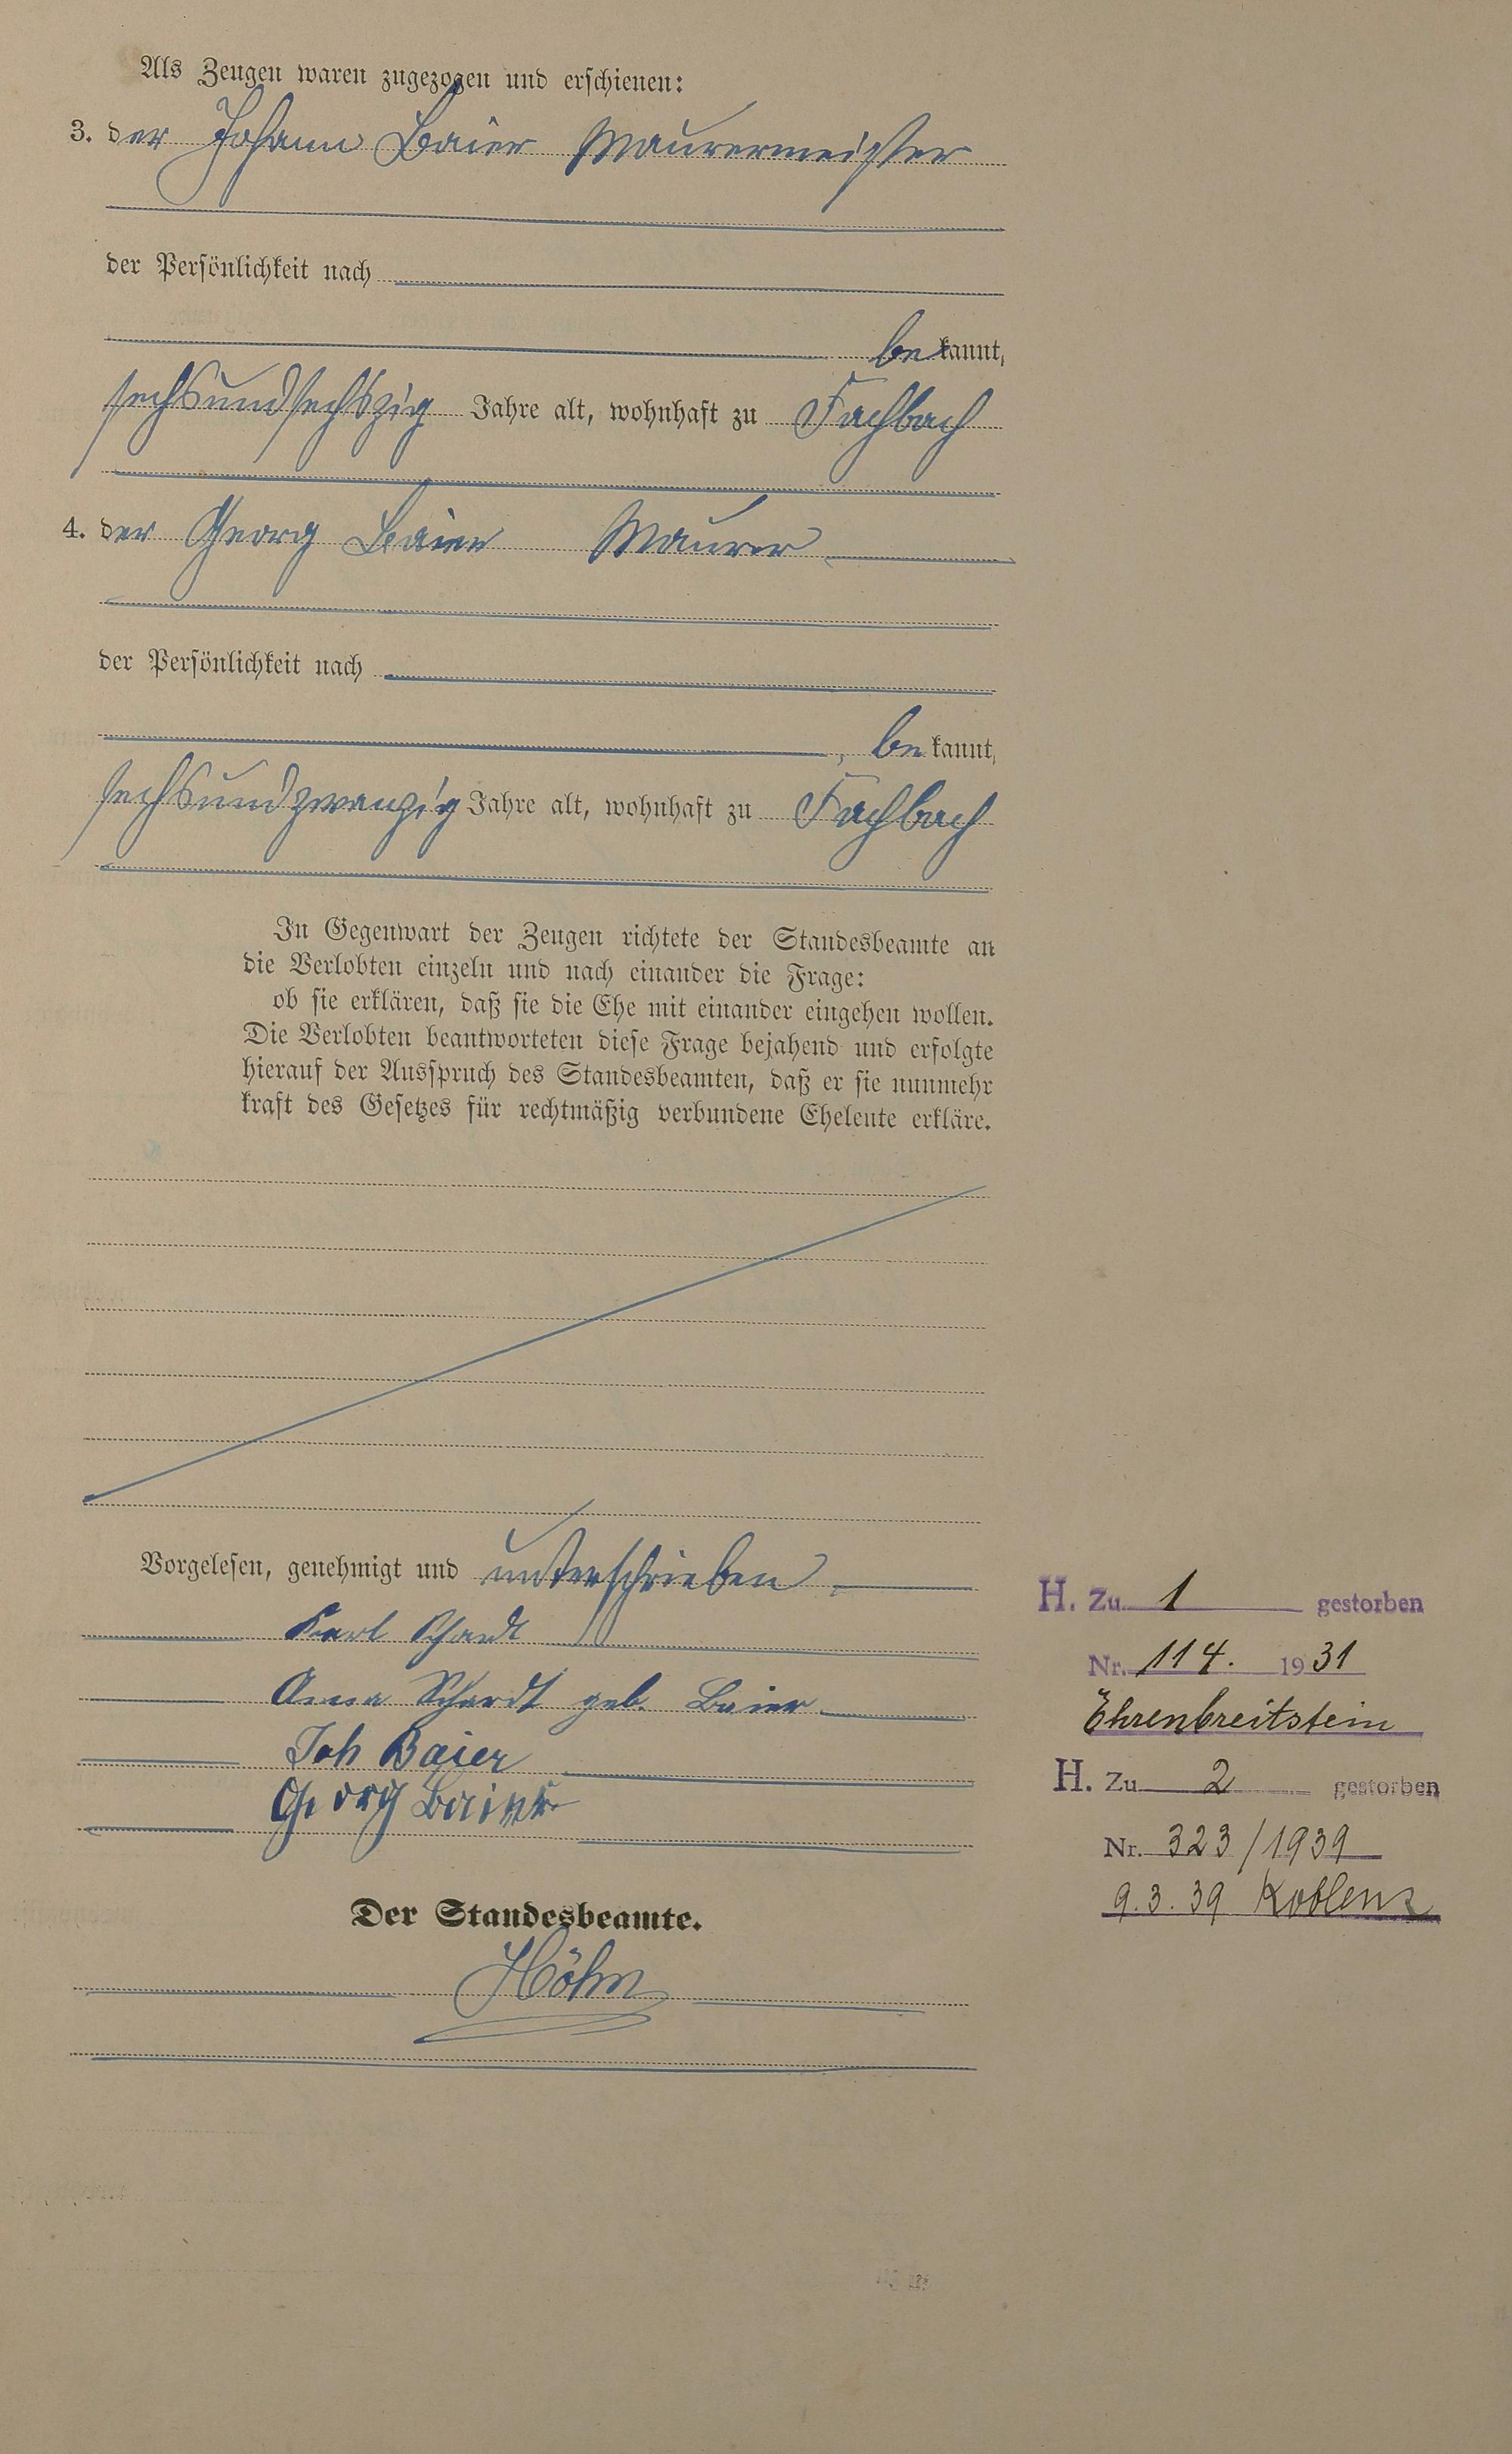 Als Zeugen waren zugezogen und erschienen:
3. der Johann Baier Maurermeister
der Persönlichkeit nach
bekannt,
sechsundsechszig Jahre alt, wohnhaft zu Fachbach
4. der Georg Baier Maurer
der Persönlichkeit nach
, bekannt,
sechsundzwanzig Jahre alt, wohnhaft zu Fachbach
In Gegenwart der Zeugen richtete der Standesbeamte an
die Verlobten einzeln und nach einander die Frage:
ob sie erklären, daß sie die Ehe mit einander eingehen wollen.
Die Verlobten beantworteten diese Frage bejahend und erfolgte
hierauf der Ausspruch des Standesbeamten, daß er sie nunmehr
kraft des Gesetzes für rechtmäßig verbundene Eheleute erkläre.
Vorgelesen, genehmigt und unterschrieben.
Karl Schardt
Anna Schardt geb. Baier
Joh Baier
Georg Baier
Der Standesbeamte.
Höhn
H. Zu 1 gestorben
Nr. 114. 1931
Ehrenbreitstein
H. Zu 2 gestorben
Nr. 323/1939
9.3.39 Koblenz